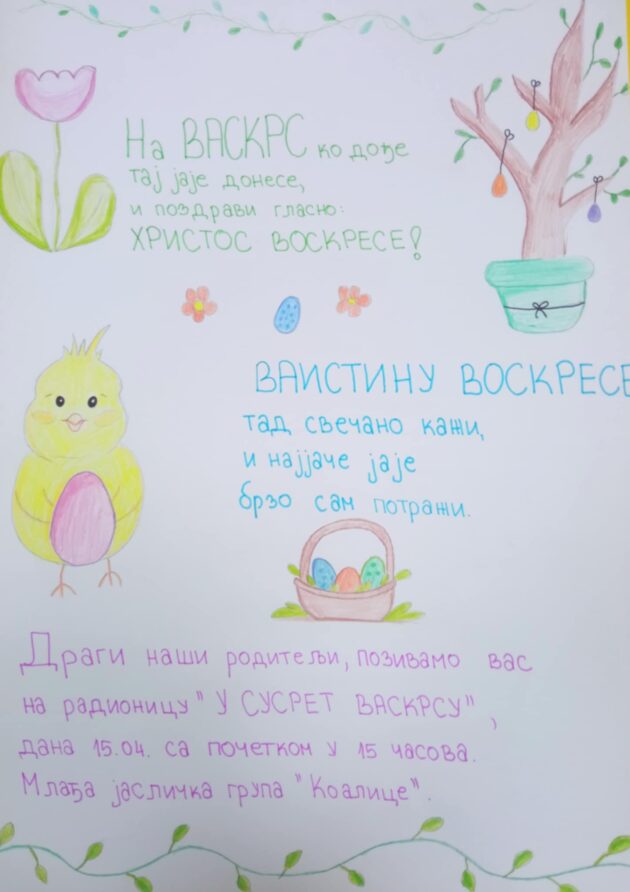 На ВАСКРС ко дође
тај јаје донесе,
и поздрави гласно:
ХРИСТОС ВОСКРЕСЕ!
ВАИСТИНУ ВОСКРЕСЕ
тад свечано кажи,
и најјаче јаје
брзо сам потражи.
Драги наши родитељи, позивамо вас
на радионицу "У СУСРЕТ ВАСКРСУ",
дана 15.04. са почетком у 15 часова.
Млађа јасличка група "Коалице".